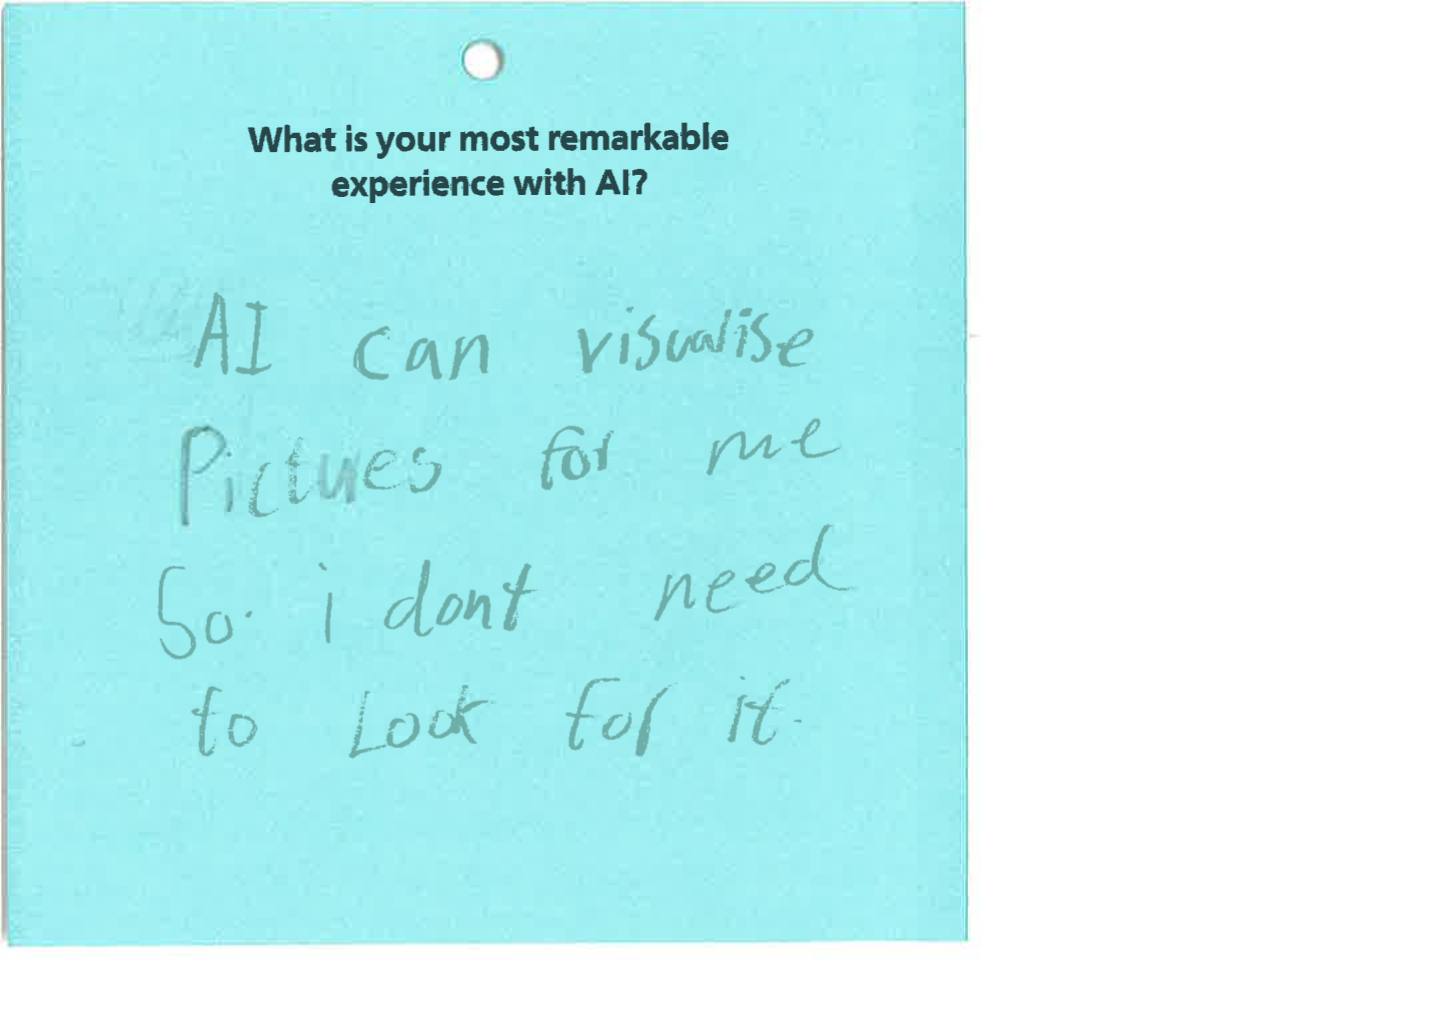 What is your most remarkable
experience with AI?
AI can visualise
Pictues for me
So. i dont need
to Look for it.